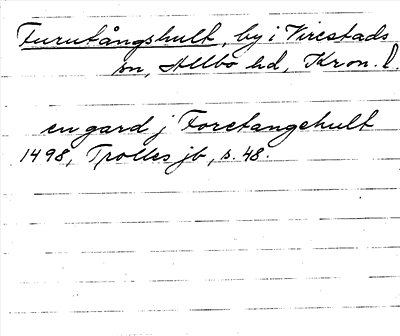 Furutångshult, by i Virestads
sn, Allbo hd, Kron. l.
en gard j Foretangehult
1498, Trolles jb, s. 48.